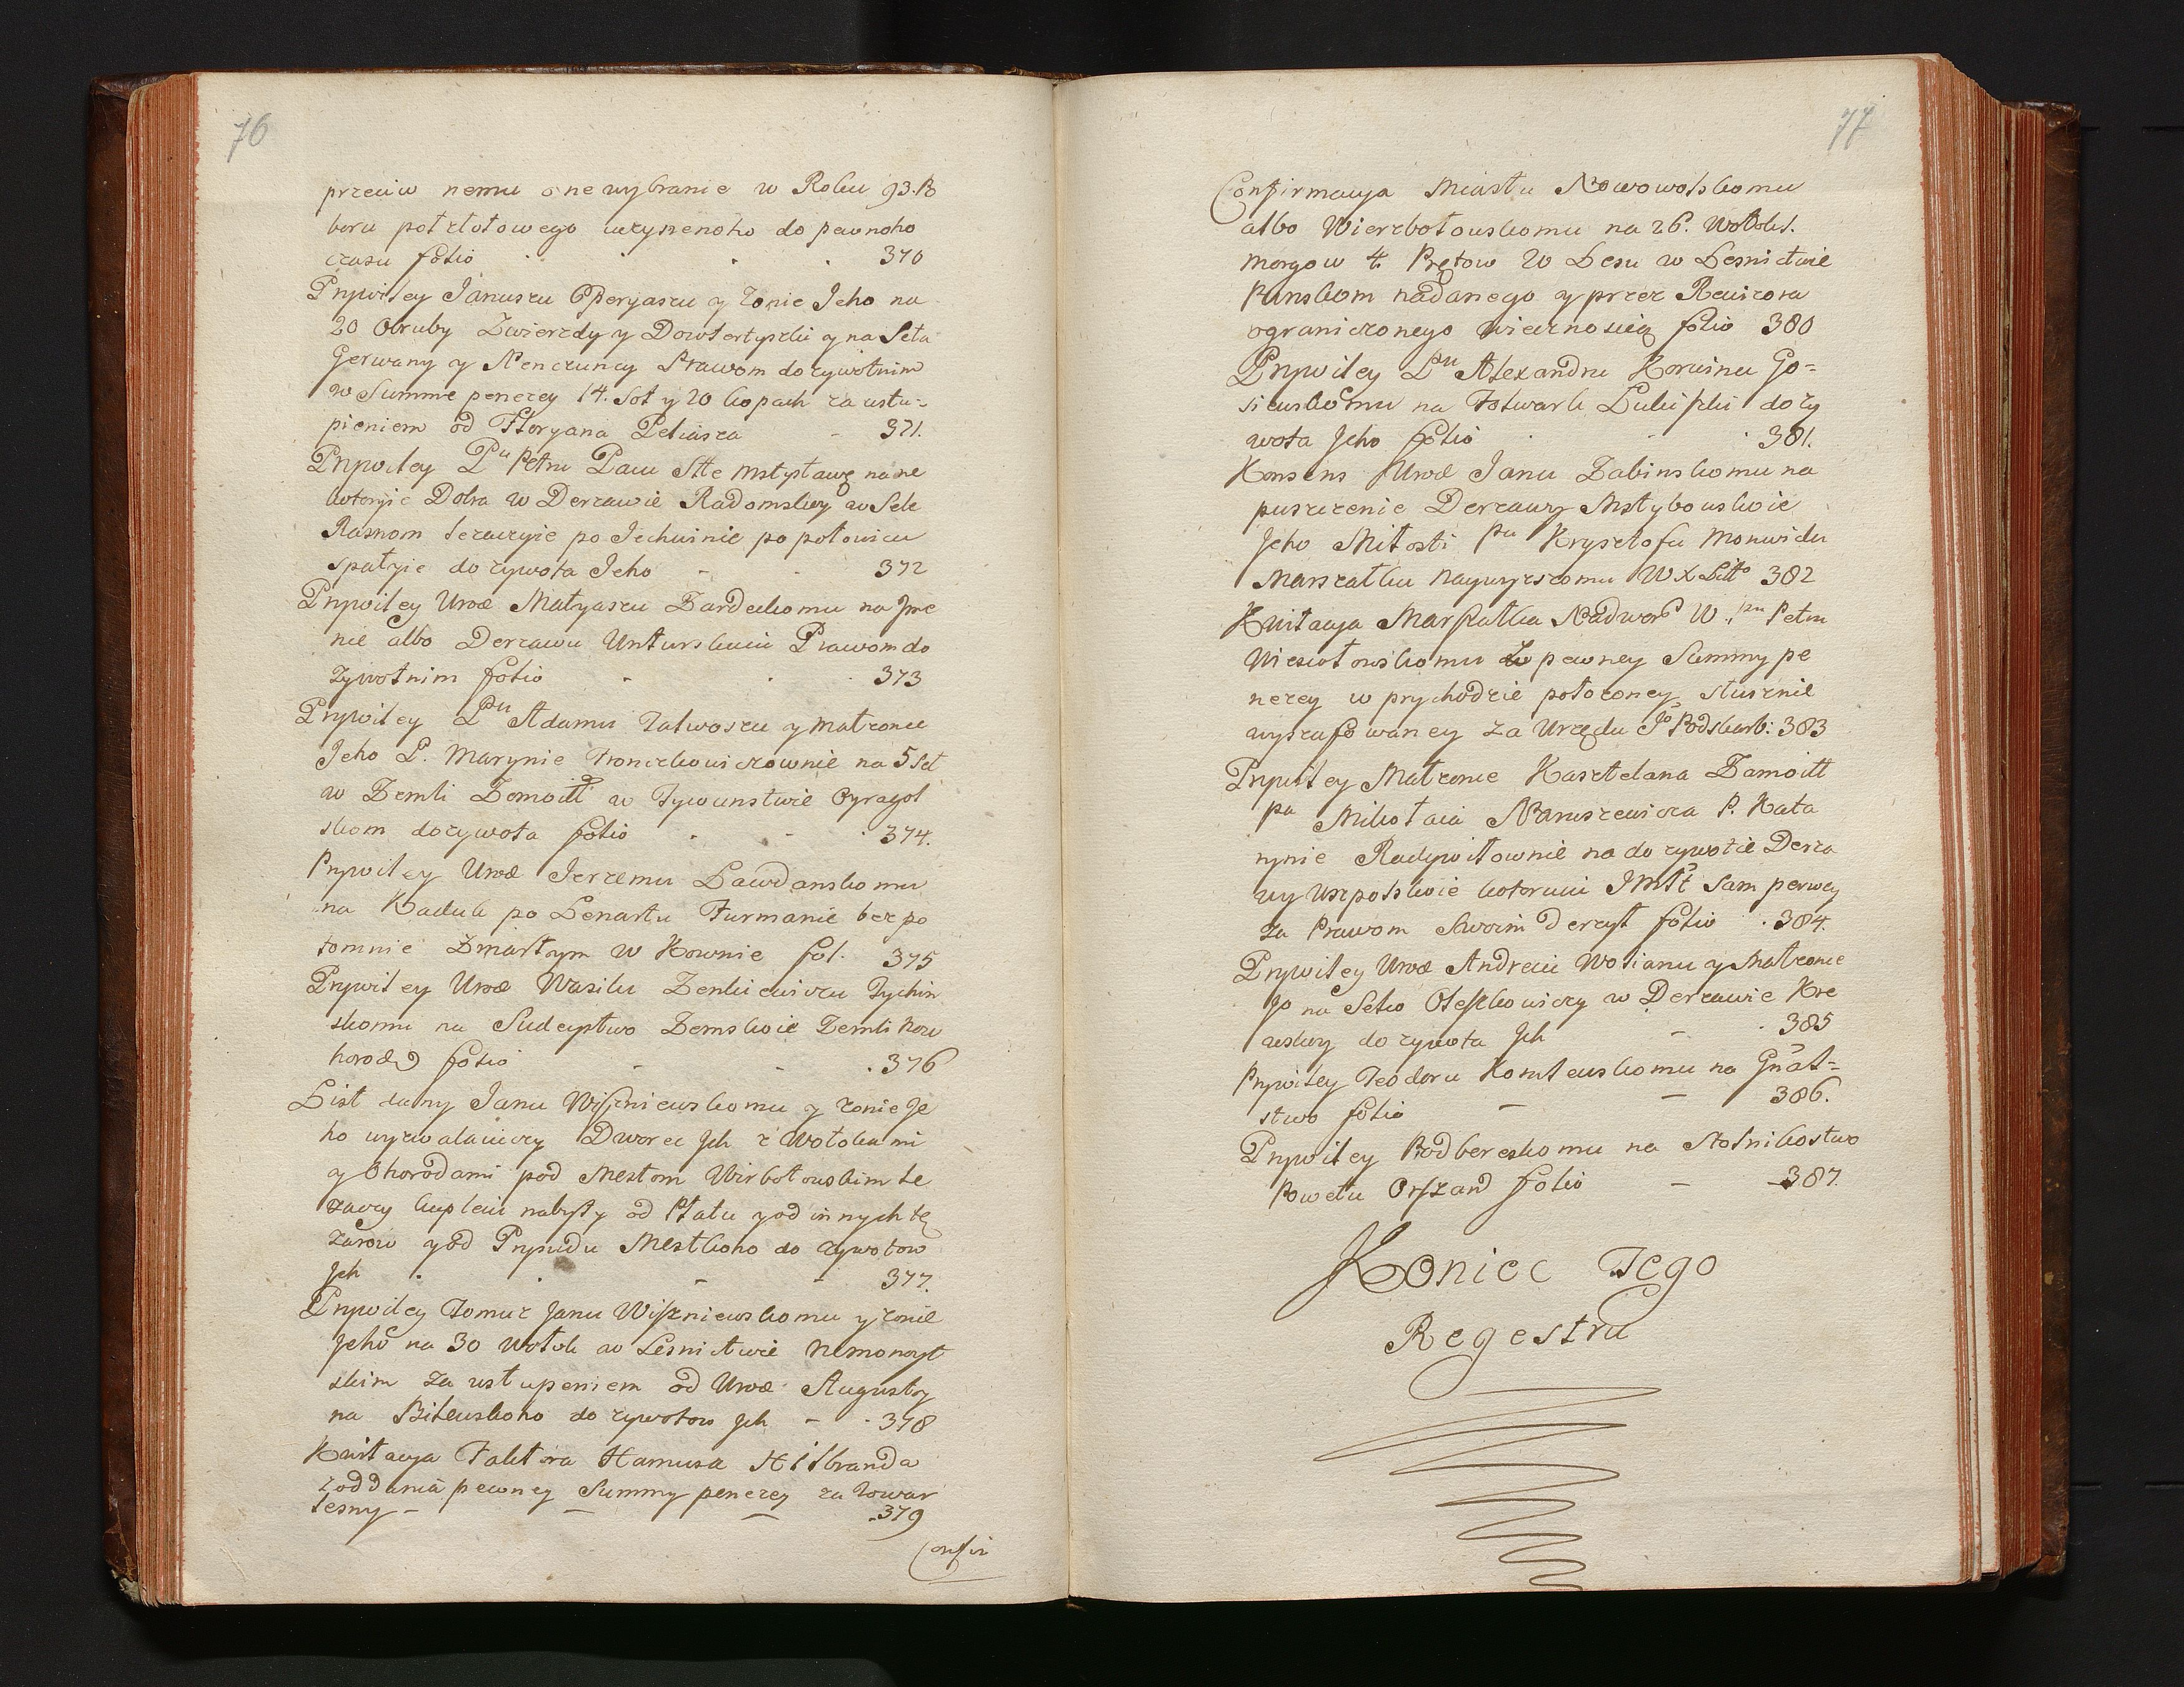 76
przeciw nemu o ne wybranie w Roku 93. Po
boru połzłotowego uczynenoho do pewnoho
czasu folio 370
Prywiley Januszu Operyaszu y Zonie Jeho na
20 Obruby Zwierzdy y Dowtertyszki y na Seła
Gerwany y Nenczuncy Prawom dożywotnim
w Summe penezey 14. Sot y 20 kopach za ustu=
pieniem od Floryana Peliasza 371.
Prywiley Pu Petru Pacu Stte Mstysławę na ne
kotoryie Dobra w Derzawie Radomskoy w Sele
Rasnom leżaczyie po Jechimie popołowicu
spałyie do żywota Jeho 372
Prywiley Urod Matyaszu Bardeckomu na Jme
nie albo Derzawu Unturskuiu Prawom do
żywotnim folio 373
Prywiley Pu Adamu Talwoszu y Małzonce
Jeho P. Marynie Wonczkowiczownie na 5 Seł
w Zemli Zomoitt w Tywunstwie Oyragol
skom dożywota folio 374.
Prywiley Urod Jerzemu Lawdanskomu
na Kaduk po Lenartu Furmanie bezpo
tomnie Zmarłym w Kownie fol. 375
Prywiley Urod Wasilu Zenkiewiczu Tychin
skomu na Sudeystwo Zemskoie Zemli Now
horod folio 376
List dany Janu Wiszniewskomu y żonie Je
ho wyzwalaiuczy Dworec Jch z Wołokami
y Ohorodami pod Mestom Wirbołowskim le
żaczy kupleiu nabyty od Płatu y od innych cię
żarow y od Prysudu Mestkoho do żywotow
Jch 377.
Prywiley Tomuż Janu Wiszniewskomu y żonie
Jeho na 30 Wołok w Lesnictwie Nemonoyt
skim za ustupeniem od Urod Augusty
na Bitewskoho do żywotow Jch 378
Kwitacya Faktora Hanusa Hilbranda
z oddania pewney Summy penezey za towar
lesny 379
Confir
77
Confirmacya Miastu Nowowolskomu
albo Wierzbołowskomu na 26. Wołok.
Morgow 4. Prętow 20 Lesu w Lesnictwie
Punskom nadanego y przez Rewizora
ograniczonego wiecznostią folio 380
Prywiley Pu Alexandru Korwinu Go=
siewskomu na Folwark Lukiszki doży
wota Jeho folio 381.
Konsens Urod Janu Zabinskomu na
puszczenie Derzawy Mstybowskoie
Jeho Miłosti Pu Krysztofu Monwidu
Marszałku Naywyższomu W X Litto 382
Kwitacya Marszałka Nadwor W. Pu Petru
Wiesiołowskomu z pewney Summy pe
nezey w prychodzie położoney słusznie
wyszafowaney za Urzędu Jo Podskarb: 383
Prywiley Małzonce Kasztelana Zamoitt
Pa Mikołaia Naruszewicza P. Kata
rynie Radywiłownie na do żywotie Derza
wy Uszpolskoie kotoruiu JMSt Sam perwey
za Prawom Swoim derzył folio 384.
Prywiley Urod Andreiu Wolianu y Małzonce
Jo na Seło Oleszkowiczy w Derzawie Kre
wskoy do żywota Jch 385
Prywiley Teodoru Komlewskomu na Gnat=
stwo folio 386.
Prywiley Podbereskomu na Stolnikostwo
Powetu Orszand folio 387.
Koniec Tego
Regestru